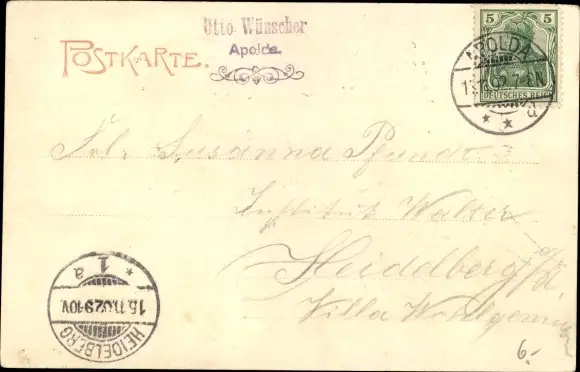 Otto Wünscher
Apolda.
POSTKARTE.
5 5
DEUTSCHES REICH
APOLDA
7-8N
d
Frl. Susanna Pfundt
Institut Walter
Heidelberg
Villa
1
a
15.11.02.9-10V.
HEIDELBERG
6.-